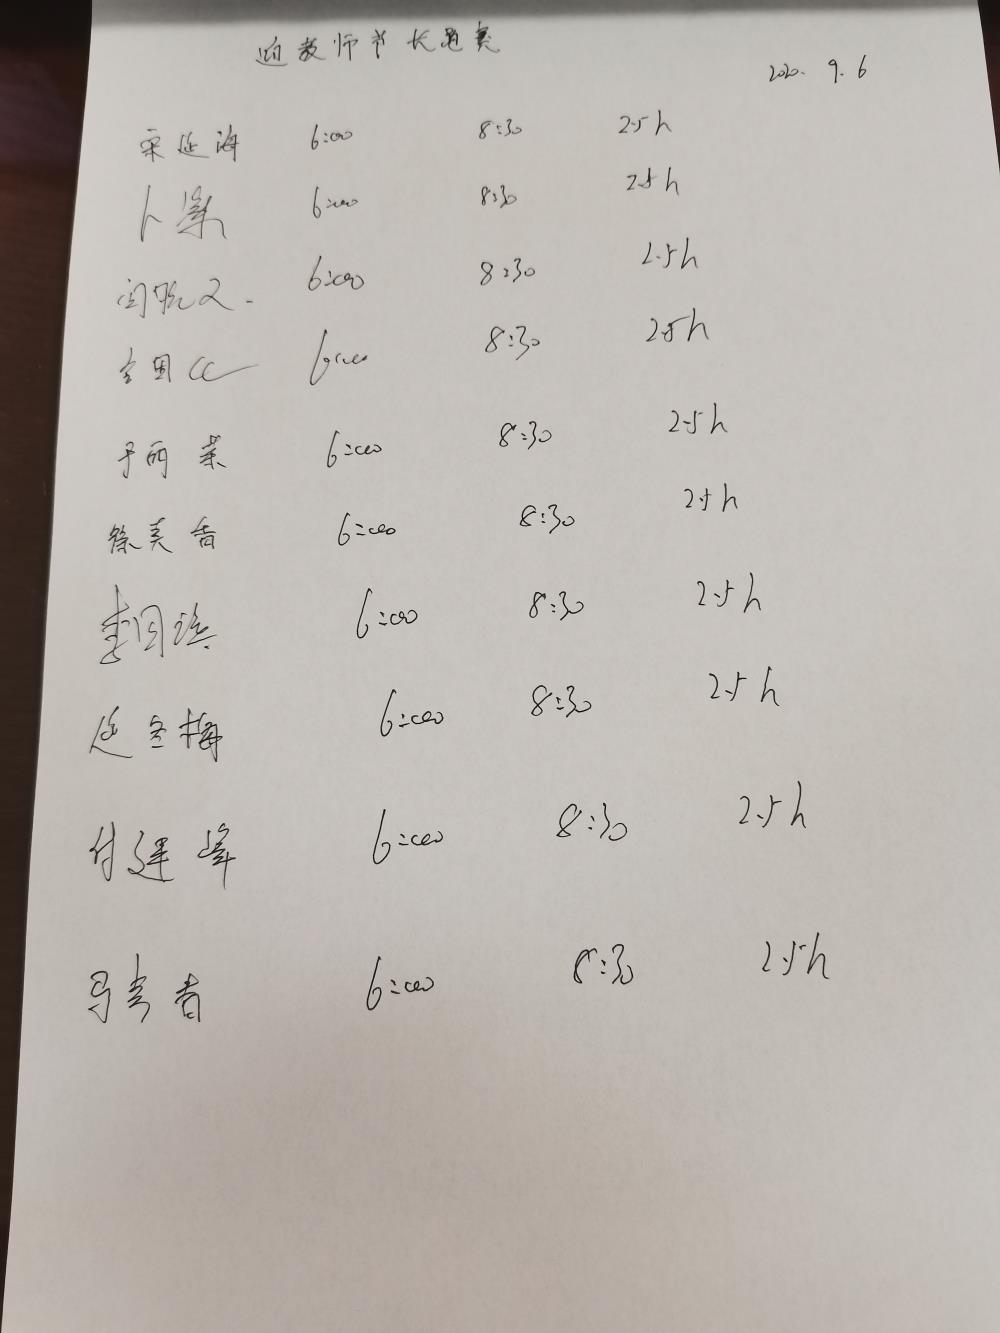 迎教师节长跑赛
2020. 9. 6
宋延海 6:00 8:30 2.5h
卜 6:00 8:30 2.5h
闫 文 6:00 8:30 2.5h
6:00 8:30 2.5h
于丽荣 6:00 8:30 2.5h
徐美香 6:00 8:30 2.5h
李同 6:00 8:30 2.5h
延冬梅 6:00 8:30 2.5h
付建峰 6:00 8:30 2.5h
马 青 6:00 8:30 2.5h